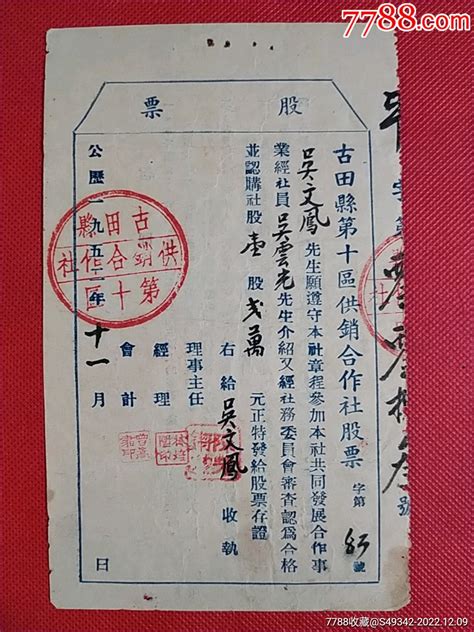 7788.com
股票
古田縣第十區供銷合作社股票 字第 85 號
吳文鳳 先生願遵守本社章程參加本社共同發展合作事
業經社員 吳雲光 先生介紹又經社務委員會審查認爲合格
並認購社股 壹 股 弍萬 元正特發給股票存證
右給 吳文鳳 收執
理事主任
經理
會計
公歷一九五二年十一月 日
古田縣
供銷合作社
第十區
字第
號
7788收藏@S49342-2022.12.09